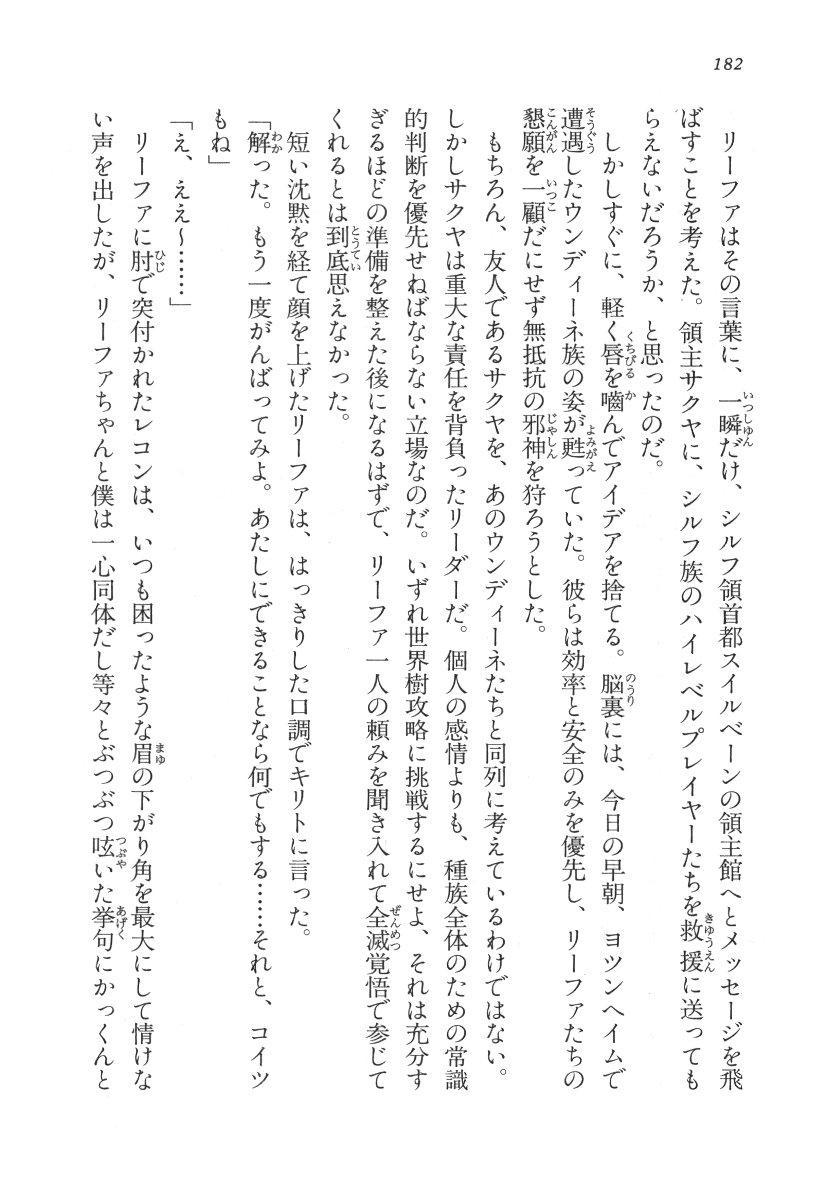 182
リーファはその言葉に、一瞬だけ、シルフ領首都スイルベーンの領主館へとメッセージを飛
ばすことを考えた。領主サクヤに、シルフ族のハイレベルプレイヤーたちを救援に送っても
らえないだろうか、と思ったのだ。
しかしすぐに、軽く唇を嚙んでアイデアを捨てる。脳裏には、今日の早朝、ヨツンヘイムで
遭遇したウンディーネ族の姿が甦っていた。彼らは効率と安全のみを優先し、リーファたちの
懇願を一顧だにせず無抵抗の邪神を狩ろうとした。
もちろん、友人であるサクヤを、あのウンディーネたちと同列に考えているわけではない。
しかしサクヤは重大な責任を背負ったリーダーだ。個人の感情よりも、種族全体のための常識
的判断を優先せねばならない立場なのだ。いずれ世界樹攻略に挑戦するにせよ、それは充分す
ぎるほどの準備を整えた後になるはずで、リーファ一人の頼みを聞き入れて全滅覚悟で参じて
くれるとは到底思えなかった。
短い沈黙を経て顔を上げたリーファは、はっきりした口調でキリトに言った。
「解った。もう一度がんばってみよ。あたしにできることなら何でもする……それと、コイツ
もね」
「え、ええ〜……」
リーファに肘で突付かれたレコンは、いつも困ったような眉の下がり角を最大にして情けな
い声を出したが、リーファちゃんと僕は一心同体だし等々とぶつぶつ呟いた挙句にかっくんと